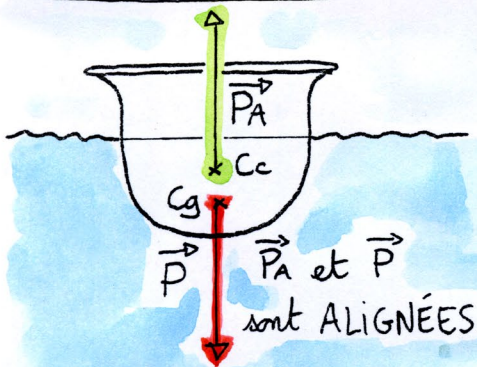 P_A
Cc
Cg
P P_A et P
sont ALIGNÉES